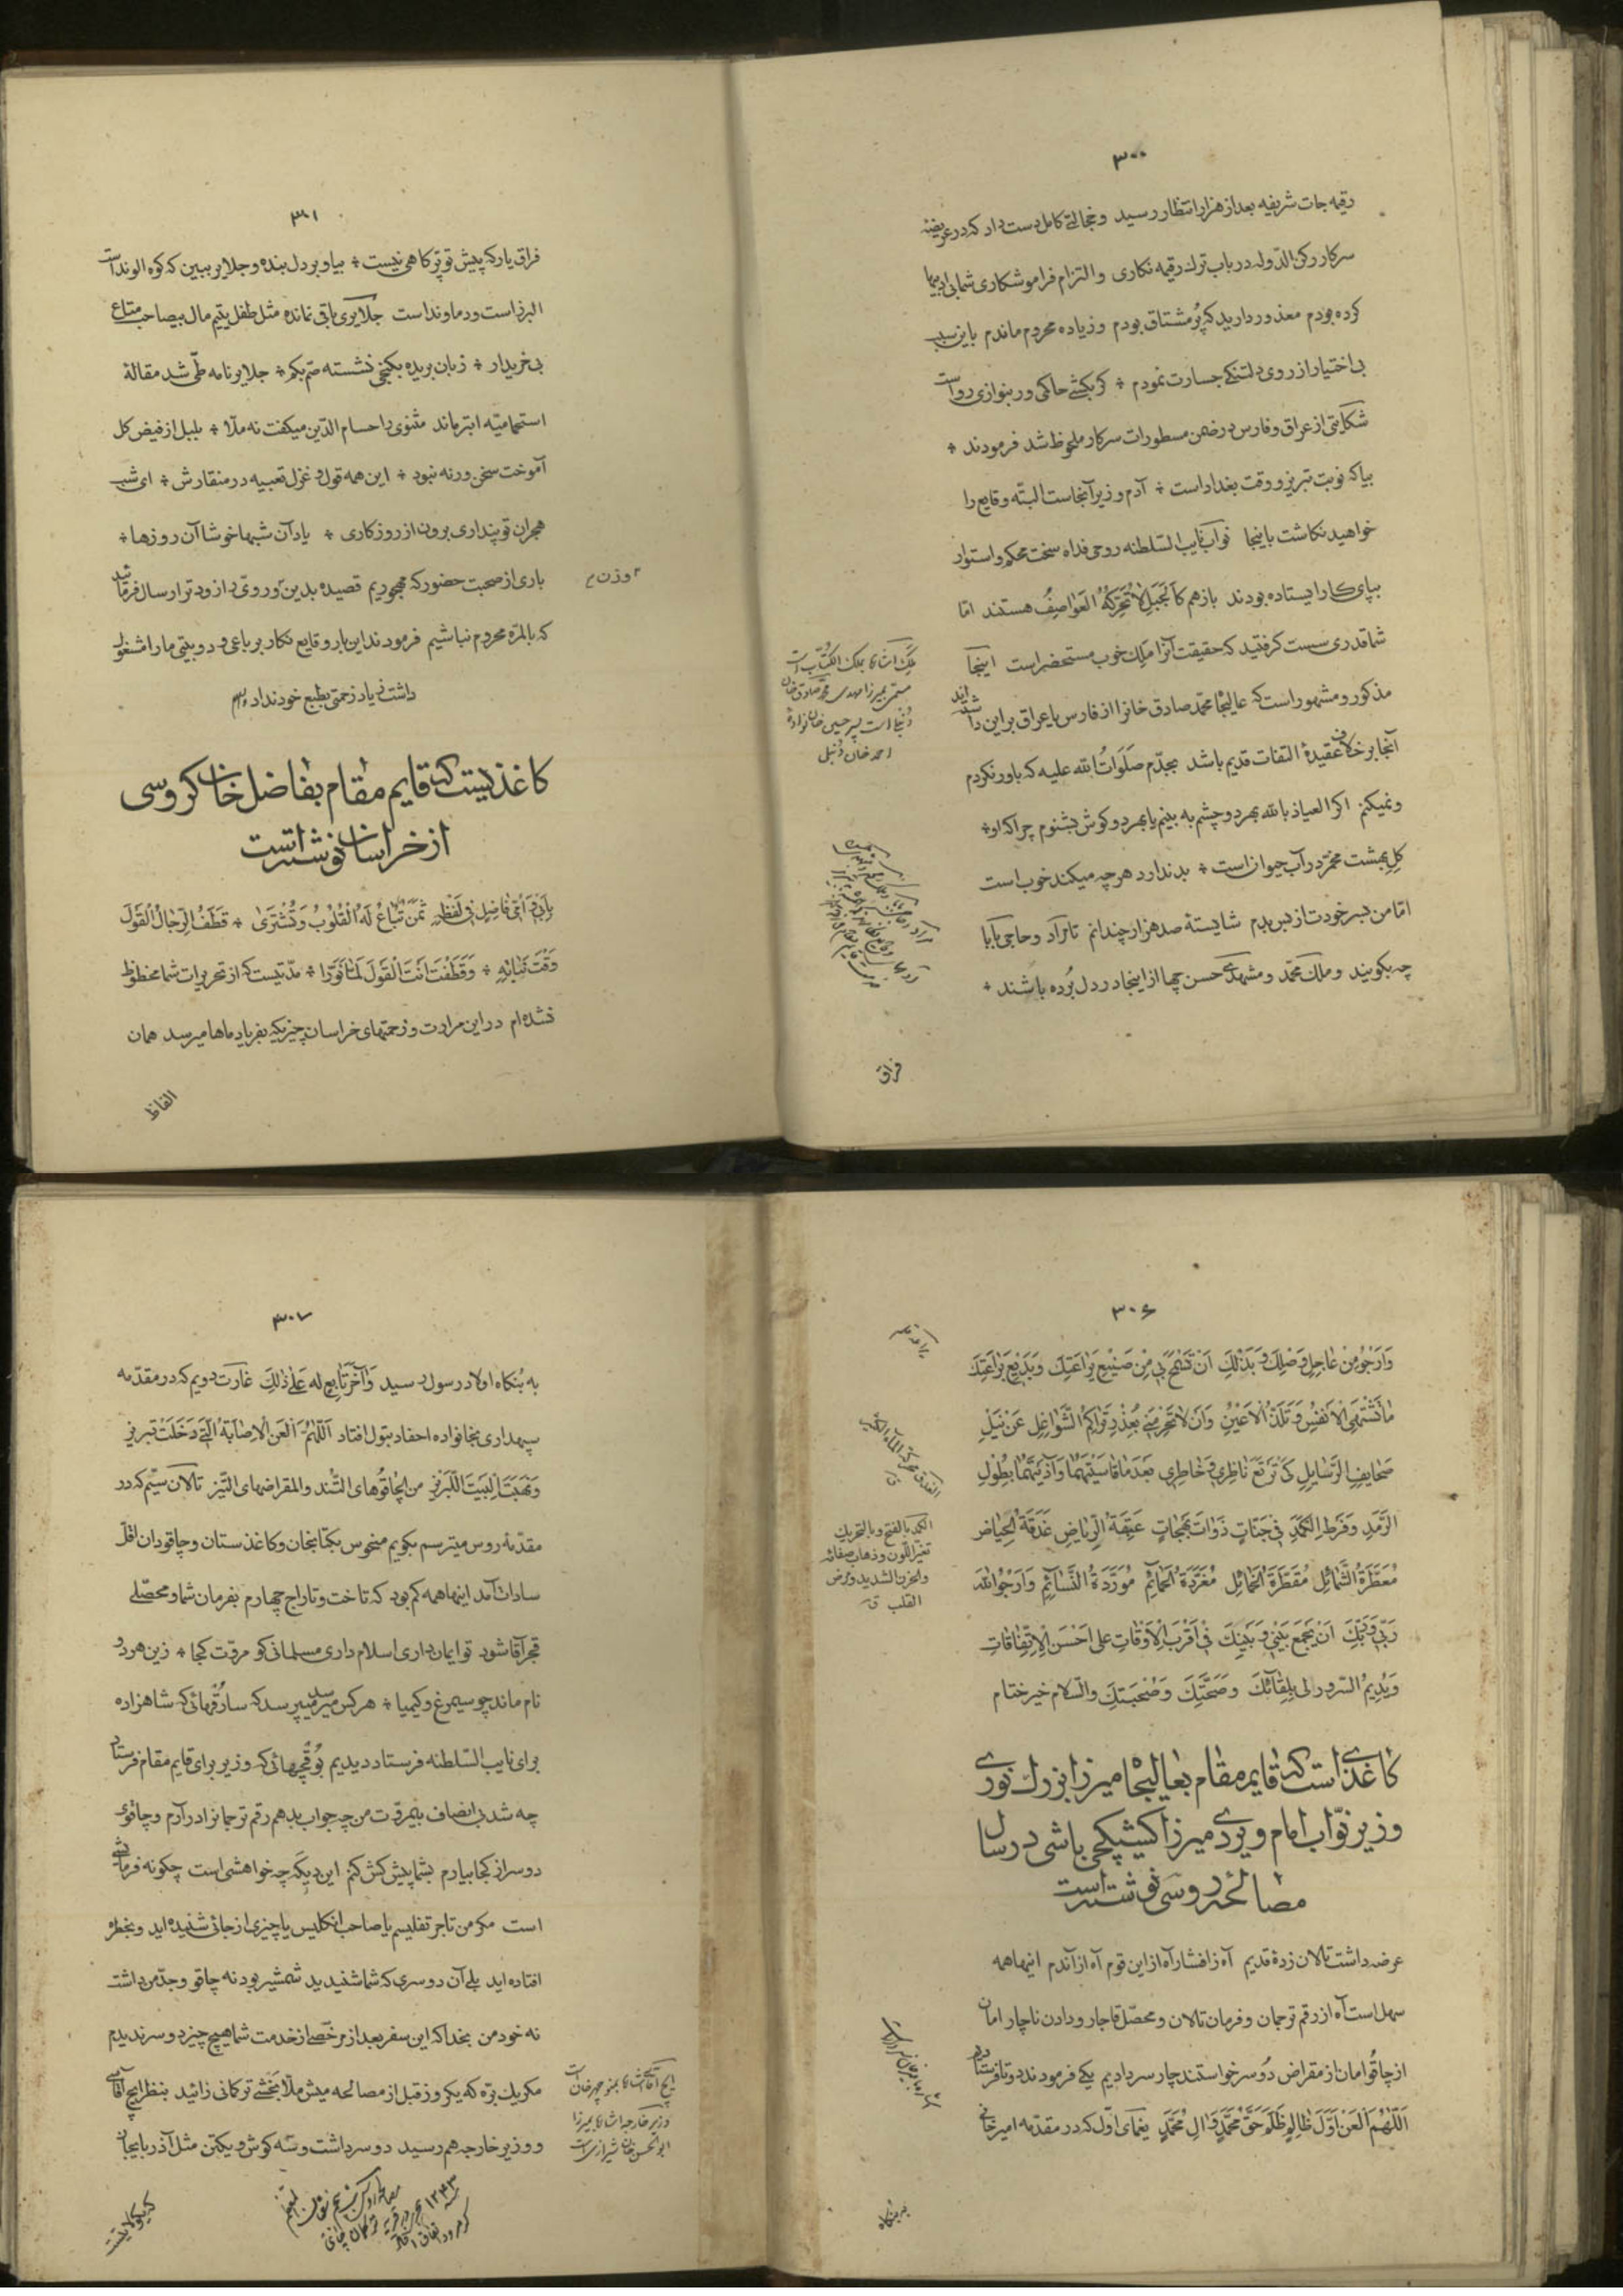 ۳۰۰
رقیمه جات شریفه بعد از هزار انتظار رسید و خجالتی کامل دست داد که در عریضهٔ
سرکار رکن الدّوله در باب ترک رقیمه نکاری و التزام فراموشکاری شما
کرده بودم معذور دارید که پُر مشتاق بودم و زیاده محروم ماندم باین سبب
بی اختیار از روی دلتنکی جسارت نمودم ÷ کر بکشی حاکمی ور بنوازی رواست
شکایتی از عراق و فارس در ضمن مسطورات سرکار ملحوظ شد فرمودند ÷
بیا که نوبت تبریز و وقت بغداد است ÷ آدم وزیر آنجاست البتّه وقایع را
خواهید نکاشت باینجا نوّاب نایب السّلطنه روحی فداه سخت محکم و استوار
بپای کار ایستاده بودند باز هم کَالجَبَلِ لاتُحَرِّکُهُ العَواصِفُ هستند امّا
شما قدری سست کرفتید که حقیقت آنرا ملک خوب مستحضر است اینجا
مذکور و مشهور است که عالیجاه محمّد صادق خانرا از فارس یا عراق بر این داشته‌اند
آنجا بر خلاف عقیدهٔ التفات قدیم باشد بجدّم صَلَواتُ الله علیه که باور نکردم
و نمیکنم اکر العیاذ بالله بهر دو چشم به بینم یا بهر دو کوش بشنوم چرا که او ÷
کلِ بهشت مخمّر در آب حیوان است ÷ بد ندارد هر چه میکند خوب است
امّا من بسر خودت از بس بدم شایستهٔ صد هزار چندانم تا نراد و حاجی بابا
چه بکویند و ملک محمّد و مشهدی حسن چها از اینجا در دل بُرده باشند ÷
ملک اشاره بملک الکتّاب است
احمد خان دنبلی
فراق
۳۰۱
فراق یار که پیش تو پَرّ کاهی نیست ÷ بیا و بر دل بنده و جلایر ببین که کوه الوند است
البرز است و دماوند است جلایری باقی نمانده مثل طفل یتیم مال بیصاحب متاع
بی خریدار ÷ زبان بریده بکنجی نشسته صمّ بکم ÷ جلایر نامه طی شد مقالهٔ
استمامیّه ابتر ماند مثنوی را حسام الدّین میکفت نه ملّا ÷ بلبل از فیض کل
آموخت سخن ورنه نبود ÷ این همه قول و غزل تعبیه در منقارش ÷ ای شب
هجران تو پنداری برون از روزکاری ÷ یاد آن شبها خوشا آن روزها ÷
باری از صحبت حضور که مهجوریم قصیده بدین وروی را زودتر ارسال فرمائید
وزن م
که بالمرّه محروم نباشیم فرمودند این بار وقایع نکار بر باعی و دو بیتی ما را مشغول
داشت زیاد زحمتی بطبع خود نداد والسّلام
کاغذیست که قایم مقام بفاضل خان کروسی
از خراسان نوشته است
بِاَبی وَ اُمّی فاضِل فی لَفظِهِ ثَمَنٌ تُباعُ لَهُ القُلُوبُ وَ تُشتَری ÷ قَطَفَ الرِّجالُ القَولَ
وَقتَ نَباتِهِ ÷ وَ قَطَفتَ اَنتَ القَولَ لَمّا نَوَّرا ÷ مدّتیست که از تحریرات شما محظوظ
نشده‌ام در این مرارت و زحمتهای خراسان چیزیکه بفریاد ماها میرسد همان
الفاظ
۳۰۶
وَ اَرجُو مِن عاجِلِ وَصلِکَ وَ بَذلِکَ اَن تَسمَحَ بی مِن صَنیعِ یَراعَتِکَ وَ بَدیعِ بَراعَتِکَ
ما تَشتَهِی الاَنفُسُ وَ تَلَذُّ الاَعیُنُ وَ اَن لا تَحرِمَنی بِعُذرِ تَراکُمِ الشَّواغِلِ عَن نَیلِ
صَحایِفِ الرَّسایِلِ کَی تَرتَعَ ناظِری وَ خاطِری بَعدَ ما قاسَیتُهُما وَ آذَیتُهُما بِطُولِ
الرَّمَدِ وَ فَرطِ الکَمَدِ فی جَنّاتٍ ذَواتَ بَهَجاتٍ عَبِقَةِ الرِّیاضِ غَدَقَةِ الحِیاضِ
مُعَطَّرَةِ الشَّمائِلِ مُقَطَّرَةِ الخَمائِلِ مُغَرَّدَةِ الحَمائِمِ مُوَرَّدَةِ النَّسائِمِ وَ اَرجُو اللهَ
رَبّی وَ رَبَّکَ اَن یَجمَعَ بَینی وَ بَینَکَ فی اَقرَبِ الاَوقاتِ عَلی اَحسَنِ الاِتِّفاقاتِ
وَ یُدیمُ السُّرورَ لی بِلِقائِکَ وَ صِحَّتِکَ وَ صُحبَتِکَ وَ السّلام خیر ختام
الکمد بالفتح و بالتحریک
تغیّر اللّون و ذهاب صفائه
والحزن الشدید و مرض
القلب ق
کاغذی است که قایم مقام بعالیجاه میرزا بزرک نوری
وزیر نوّاب امام ویردی میرزا کشیکچی باشی در سال
مصالحه روسی نوشته است
عرضه داشت تالان زدهٔ قدیم آه ز افشار آه از این قوم آه از آندم اینها همه
سهل است آه از رقم ترجمان و فرمان تالان و محصّل قاجار و دادن ناچار امان
از چاقو امان از مقراض دُو سر خواستند چار سر دادیم یکی فرمودند دو تا فرستادیم
اَللّهُمَّ العَن اَوَّلَ ظالِمٍ ظَلَمَ حَقَّ مُحَمَّدٍ وَ الِ مُحَمَّدٍ یغمای اوّل که در مقدّمه امیر خانی
به بنکاه
۳۰۷
به بُنکاه اولاد رسول رسید وَ آخَرَ تابِعٍ لَهُ عَلی ذلِکَ غارت دویم که در مقدّمه
سپهداری بخانواده احفاد بتول افتاد اَللّهُمَّ العَنِ الاِصابَةَ الَّتی دَخَلَت تبریز
وَ نَهَبَتِ البَیتَ اللَّبریز من الچاقوهای التُّند و المقراضهای التّیز تالان سیّم که در
مقدّمه روس میترسم بکویم منحوس بکتابخان و کاغذستان و چاقودان اقلّ
سادات آمد اینها همه کم بود که تاخت و تاراج چهارم بفرمان شما و محصّلی
قجر آقا شود تو ایمان داری اسلام داری مسلمانی کو مروّت کجا ÷ زین هر دو
نام ماند چو سیمرغ و کیمیا ÷ هر کس میرسد میپرسد که سارُقهائی که شاهزاده
برای نایب السّلطنه فرستاد دیدیم بُوقچهائی که وزیر برای قایم مقام فرستاد
چه شد بی انصاف بیمروّت من چه جواب بدهم رقم ترجمانرا در آرم و چاقوی
دو سر از کجا بیارم بشما پیش کش کنم این دیکر چه خواهشی است چکونه فرمایشی
است مکر من تاجر تفلیسم یا صاحب انکلیس یا چیزی از جائی شنیده‌اید و بخطره
افتاده‌اید بلی آن دو سری که شما شنیدید شمشیر بود نه چاقو و جدّ من داشت
نه خود من بخدا که این سفر بعد از مرخّصی از خدمت شما هیچ چیز دو سر ندیدم
مکر یک برّه که یکروز قبل از مصالحه میش ملّا بخشی ترکمانی زائید بنظر ایچ آقاسی
و وزیر خارجه هم رسید دو سر داشت و سه کوش و یکتن مثل آذربایجان
وزیر خارجه اشاره بمیرزا
ابوالحسن خان شیرازیست